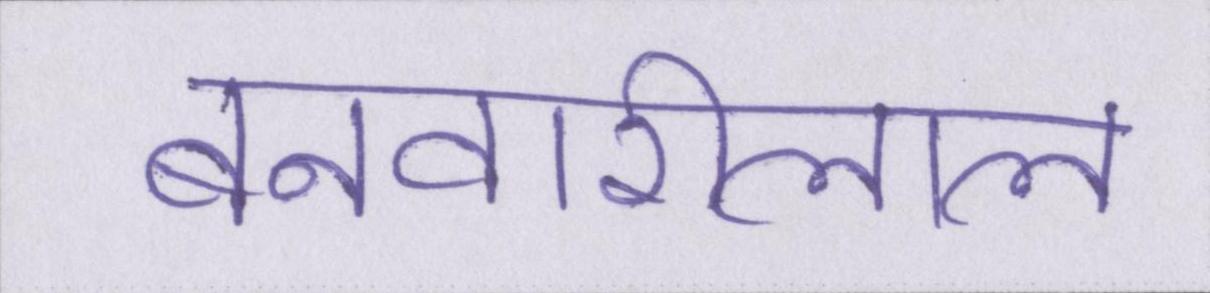 बनवारीलाल